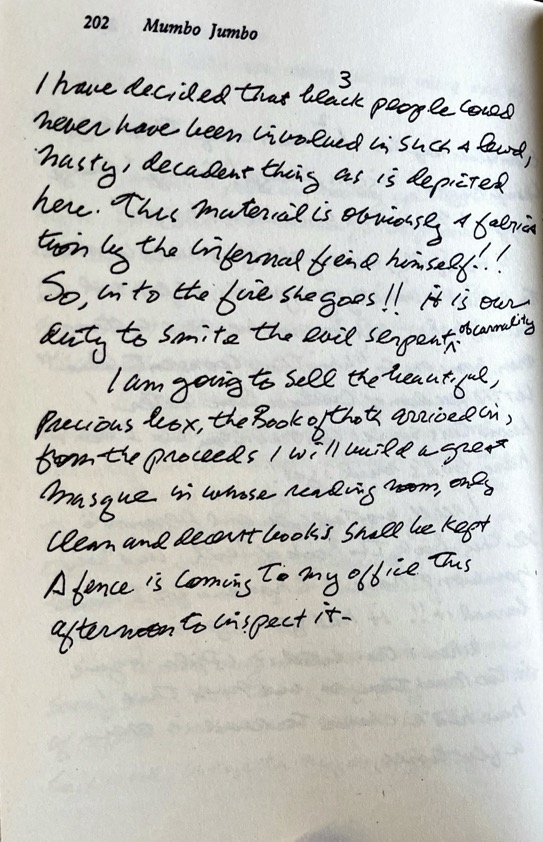 202 Mumbo Jumbo
3
I have decided that black people could
never have been involved in such a lewd,
nasty, decadent thing as is depicted
here. This material is obviously a fabrica
tion by the infernal fiend himself!!!
So, into the fire she goes!! it is our
duty to smite the evil serpent of carnality
I am going to sell the beautiful,
precious box, the Book of Thoth arrived in,
from the proceeds I will build a great
masque in whose reading room, only
clean and decent books shall be kept
A fence is coming to my office this
afternoon to inspect it-